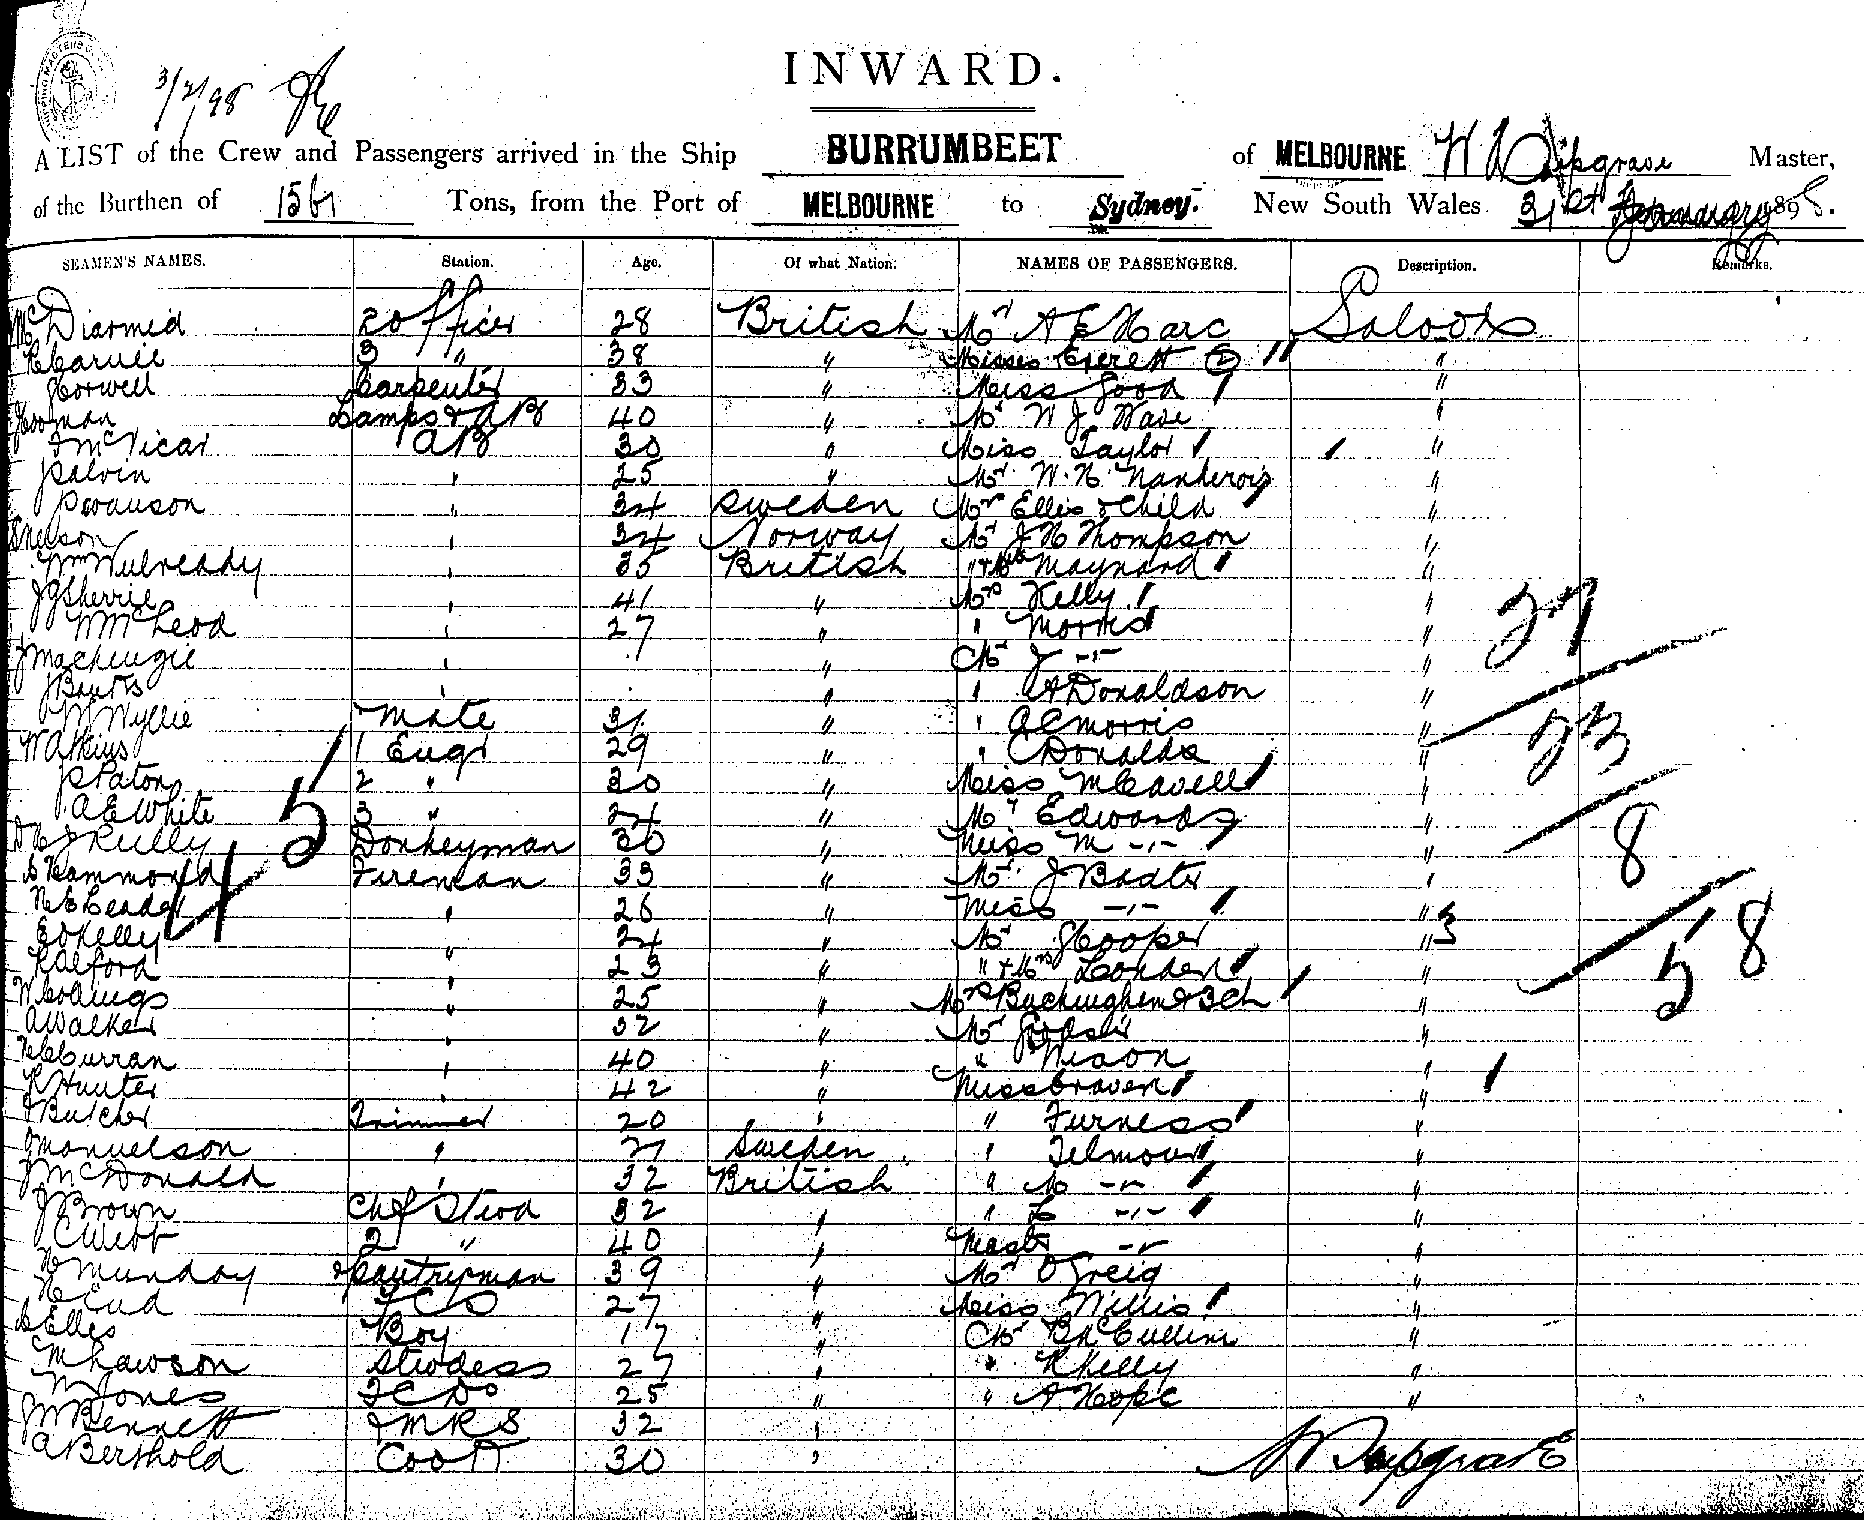 3/2/98
INWARD.
A LIST of the Crew and Passengers arrived in the Ship BURRUMBEET of MELBOURNE W Master,
of the Burthen of Tons, from the Port of MELBOURNE to Sydney. New South Wales 31st January 1898.
SEAMEN'S NAMES. Station. Age. Of what Nation: NAMES OF PASSENGERS. Description. Remarks.
McDiarmid 2 Officer 28 British Mr A E Marc Saloon
3 " 38 " Misses Everett 2 "
Carpenter 33 " Miss Good "
Lamps & AB 40 " Mr W J Wase "
McVicar AB 30 " Miss Taylor "
Salvin " 25 " Mr W. H. "
Swanson " 34 Sweden Mrs Ellis & Child "
Nelson " 34 Norway Mr J H Thompson "
Wm Mulready " 35 British " & Mrs Maynard "
J Sherrie " 41 " Mrs Kelly "
W McLeod " 27 " " Morris "
J Mackenzie " " Mr J -"- "
" " " A Donaldson "
W Wyllie Mate 31 " " A E Morris "
W Atkins 1 Engr 29 " " C Donalds "
J Paton 2 " 30 " Miss M Cavell "
A E White 3 " 24 " Mr Edwards "
J Reilly Donkeyman 30 " Miss M -"- "
S Hammond Fireman 33 " Mr J Baxter "
" 26 " Miss -"- "
E O Kelly " 24 " Mr J Cooper "
R Alford " 23 " " & Mrs Londen "
W " 25 " Mrs Buckingham & 3 Ch "
A Walker " 32 " Mr "
Curran " 40 " " Nixon "
R Hunter " 42 " Miss Craven "
Butcher Trimmer 20 " " Furness "
Manuelson " 27 Sweden " Telmour "
J McDonald " 32 British " M -"- "
J Brown Chf Stewd 32 " " L -"- "
C Webb 2 " 40 " Master -"- "
H Munday Pantryman 39 " Mr O Greig "
F C S 27 " Miss Willis "
Elles Boy 17 " Mr B McCullim "
M Lawson Stwdess 27 " " R Kelly "
M Jones 2 C Do 25 " " A Hope "
J W Bennett & M R S 32 "
A Berthold Cook 30 "
27
23
8
58